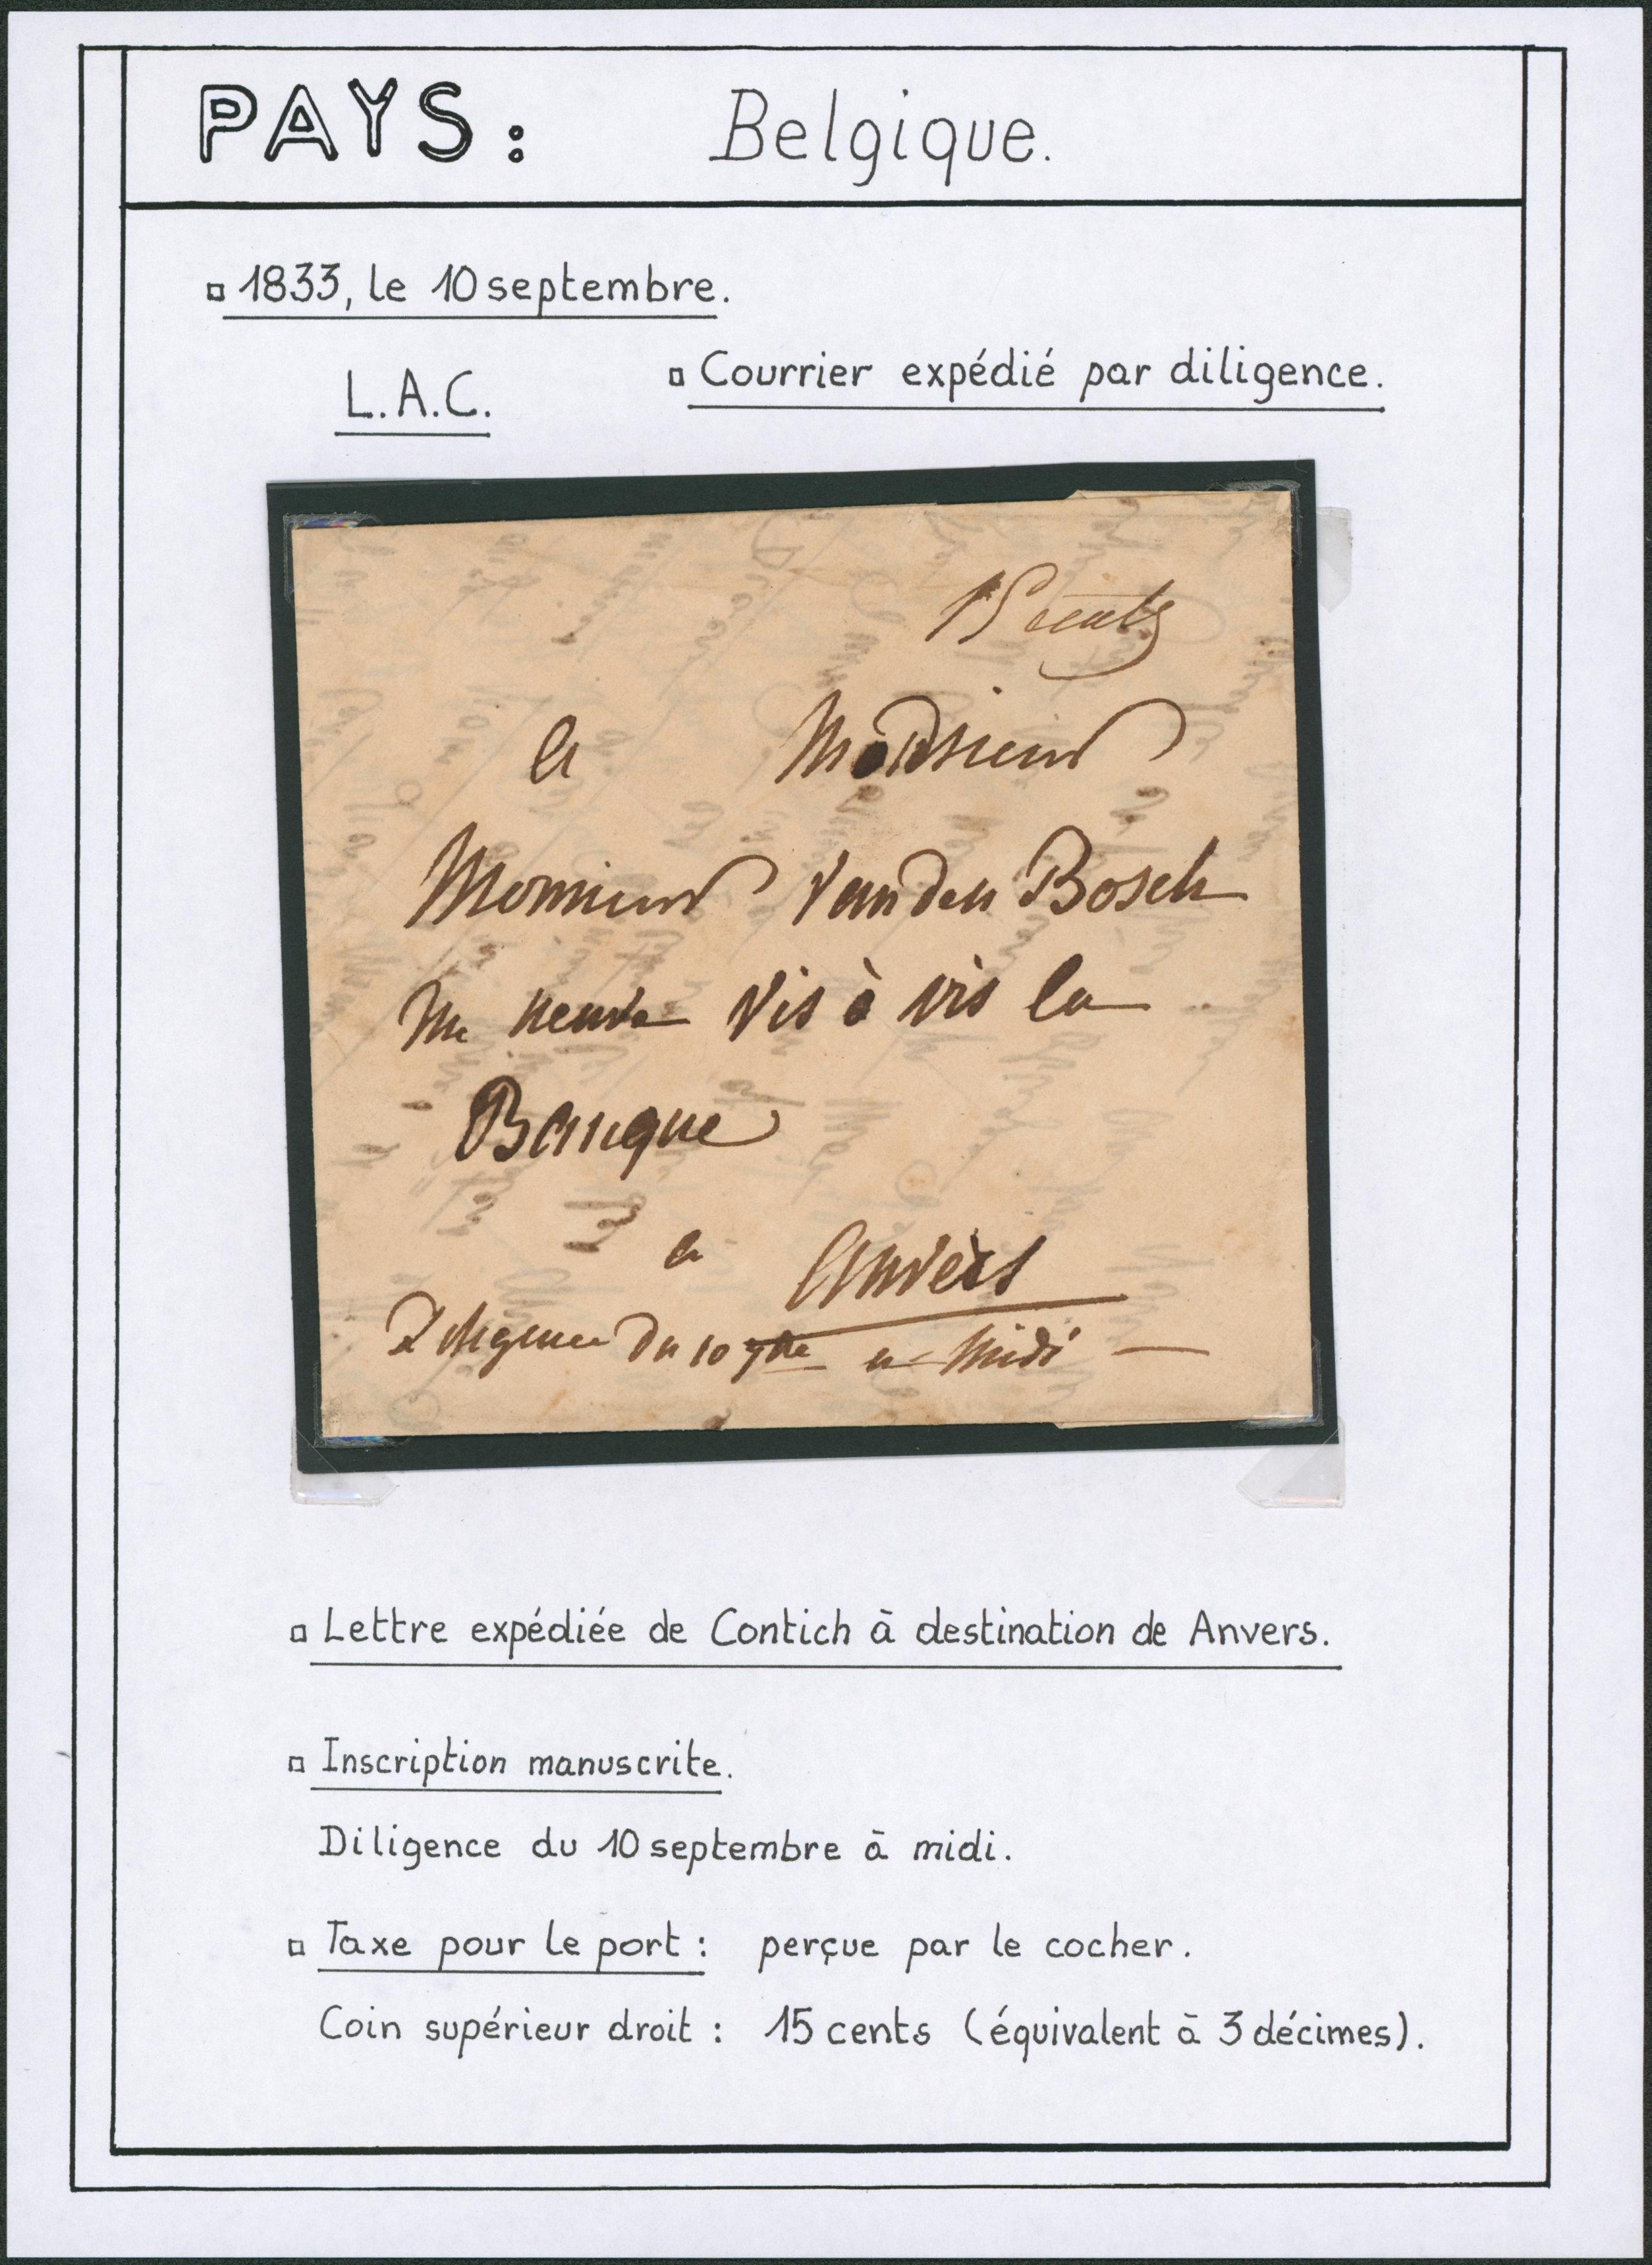 PAYS: Belgique.
1833, le 10 septembre.
L.A.C.
Courrier expédié par diligence.
15 cents
a Monsieur
Monsieur Vanden Bosch
rue neuve vis à vis la
Banque
a Anvers
Diligence du 10 7bre a midi
Lettre expédiée de Contich à destination de Anvers.
Inscription manuscrite.
Diligence du 10 septembre à midi.
Taxe pour le port : perçue par le cocher.
Coin supérieur droit : 15 cents (équivalent à 3 décimes).